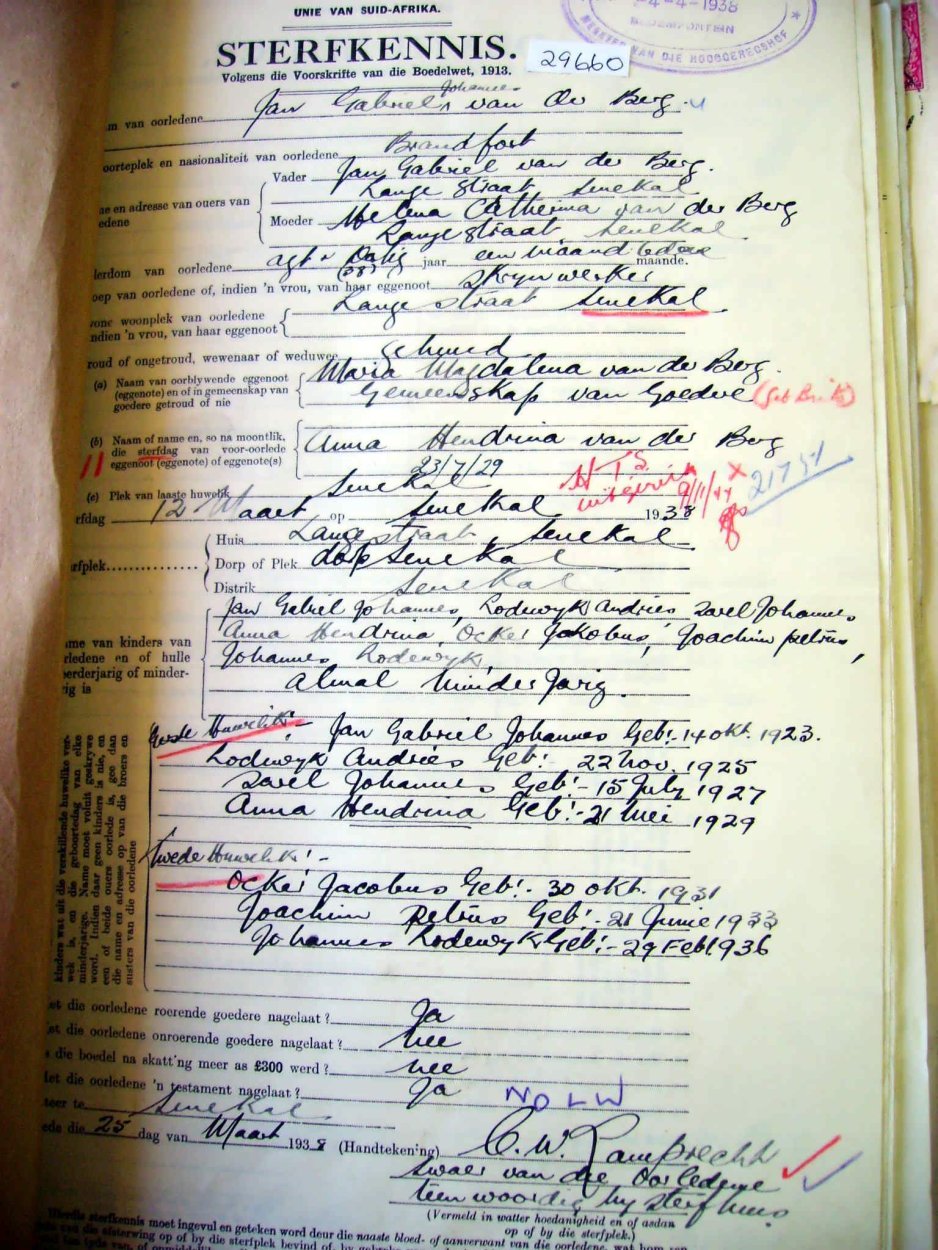 UNIE VAN SUID-AFRIKA.
STERFKENNIS.
Volgens die Voorskrifte van die Boedelwet, 1913.
29660
-4-4-1938
BLOEMFONTEIN
VAN DIE HOOGGEREGSHOF
Johannes
m van oorledene Jan Gabriel van der Berg.
oorteplek en nasionaliteit van oorledene Brandfort
Vader Jan Gabriel van der Berg.
Lange straat Senekal
ne en adresse van ouers van
edene
Moeder Helena Catherina van der Berg
Lange straat Senekal
lerdom van oorledene agt & Dertig (38) jaar een maand maande.
oep van oorledene of, indien 'n vrou, van haar eggenoot Skrynwerker
Lange straat Senekal
one woonplek van oorledene
ndien 'n vrou, van haar eggenoot
roud of ongetroud, wewenaar of weduwee gehuud
(a) Naam van oorblywende eggenoot
(eggenote) en of in gemeenskap van
goedere getroud of nie
Maria Magdalena van der Berg.
Gemeenskap van Goedere (geb Brits)
(b) Naam of name en, so na moontlik,
die sterfdag van voor-oorlede
eggenoot (eggenote) of eggenote(s)
Anna Hendrina van der Berg
23/7/29
11
(c) Plek van laaste huwelik Senekal
H.T.S.
9/1/44
x
21751
rfdag 12 Maart op Senekal 1938
rfplek
Huis Lange straat, Senekal
Dorp of Plek dorp Senekal
Distrik Senekal
ame van kinders van
rledene en of hulle
eerderjarig of minder-
rig is
Jan Gabriel Johannes, Lodewyk Andries, Sarel Johannes,
Anna Hendrina, Ocker Jakobus, Joachim petrus,
Johannes Lodewyk,
Almal Minder Jarig.
kinders wat uit die verskillende huwelike ver-
wek is, en die geboortedag van elke
minderjarige. Name moet voluit geskrywe
word. Indien daar geen kinders is nie, en
een of beide ouers oorlede is, gee dan
die name en adresse op van die broers en
susters van die oorledene
Eerste Huwelik:-
Jan Gabriel Johannes Geb:- 14 okt. 1923.
Lodewyk Andries Geb:- 22 Nov. 1925
Sarel Johannes Geb:- 15 July 1927
Anna Hendrina Geb:- 21 Mei 1929
twede Huwelik:-
Ocker Jacobus Geb:- 30 okt. 1931
Joachim Petrus Geb:- 21 June 1933
Johannes Lodewyk Geb:- 29 Feb. 1936
et die oorledene roerende goedere nagelaat? Ja
et die oorledene onroerende goedere nagelaat? Nee
s die boedel na skatt'ng meer as £300 werd? nee
Het die oorledene 'n testament nagelaat? Ja
NDLW
teer te Senekal
ede die 25 dag van Maart 1938 (Handtekening) C. W. Lamprecht
Swaer van die Oorledene
teenwoordig by sterfhuis
(Vermeld in watter hoedanigheid en of asdan
op of by die sterfplek.)
Hierdie sterfkennis moet ingevul en geteken word deur die naaste bloed- of aanverwant van die oorledene, wat